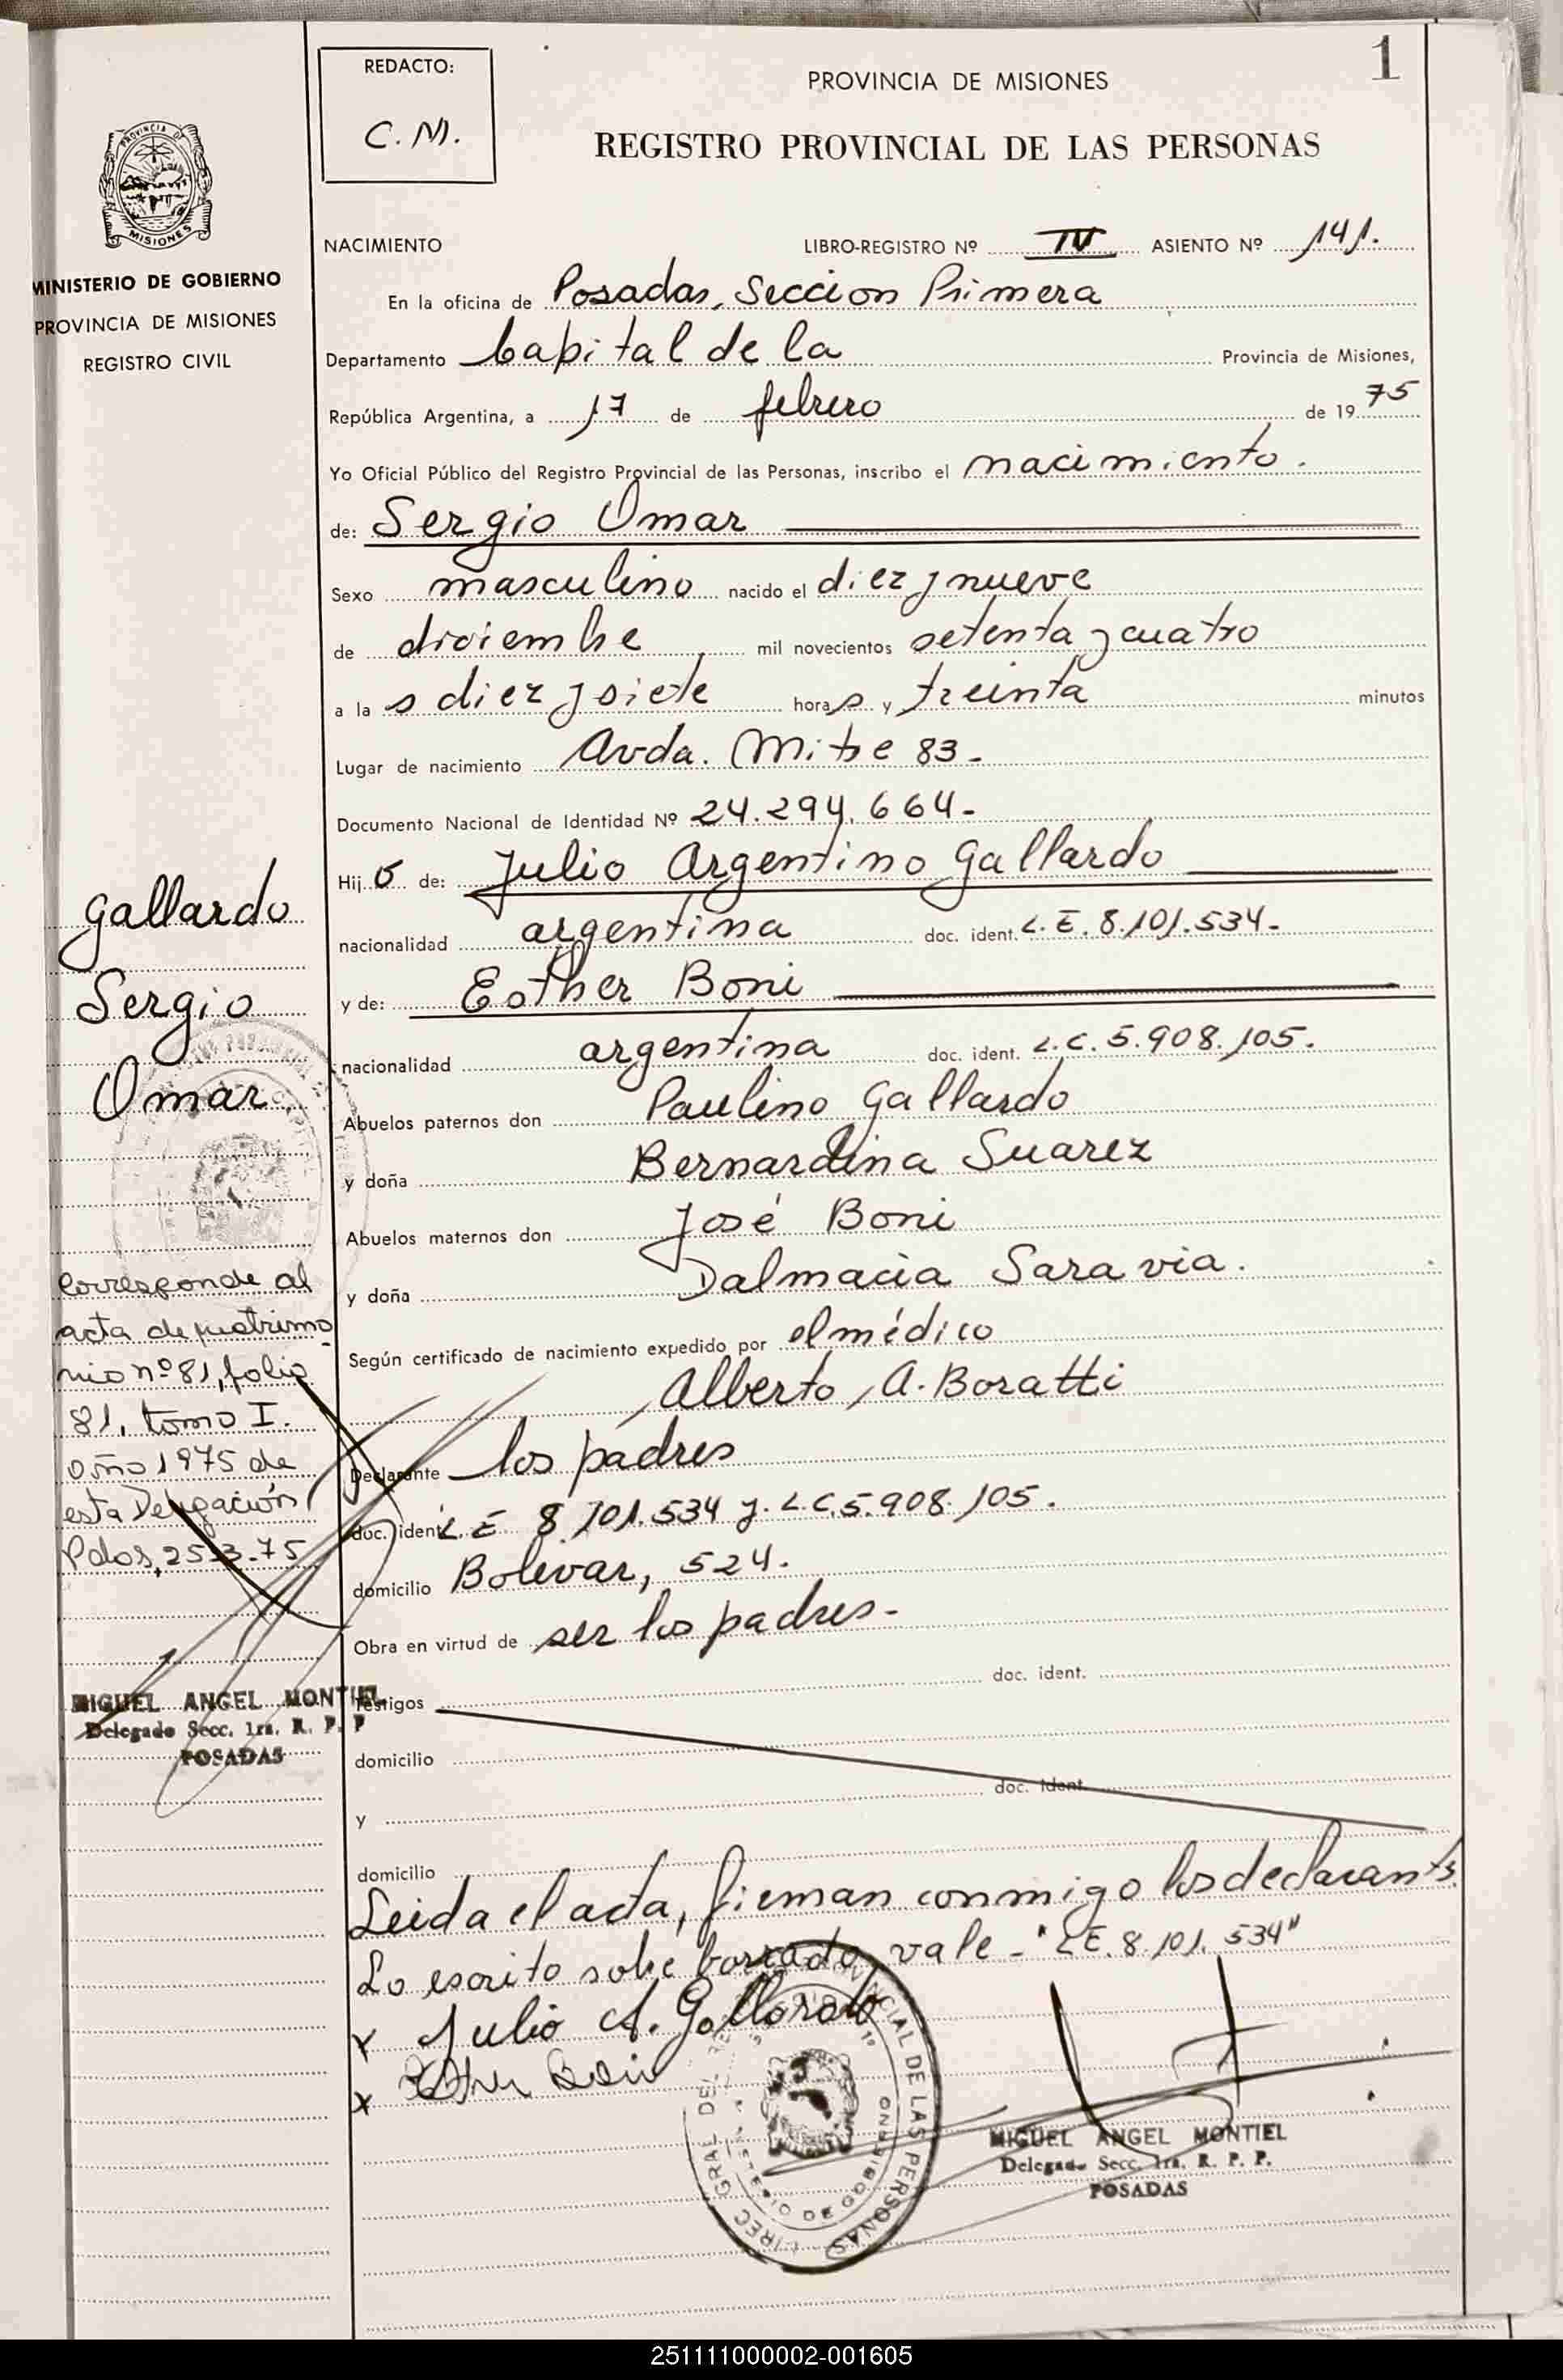 1
REDACTO:
C. M.
PROVINCIA DE MISIONES
REGISTRO PROVINCIAL DE LAS PERSONAS
PROVINCIA DE
MISIONES
MINISTERIO DE GOBIERNO
PROVINCIA DE MISIONES
REGISTRO CIVIL
NACIMIENTO LIBRO-REGISTRO Nº IV ASIENTO Nº 141.
En la oficina de Posadas, Seccion Primera
Departamento Capital de la Provincia de Misiones,
República Argentina, a 17 de febrero de 19 75
Yo Oficial Público del Registro Provincial de las Personas, inscribo el nacimiento.
de: Sergio Omar
Sexo masculino nacido el diez y nueve
de diciembre mil novecientos setenta y cuatro
a la s diez y siete hora s y treinta minutos
Lugar de nacimiento Avda. Mitre 83-
Documento Nacional de Identidad Nº 24.294.664-
Hij o de: Julio Argentino Gallardo
nacionalidad argentina doc. ident. L.E. 8.101.534-
y de: Esther Boni
nacionalidad argentina doc. ident. L.C. 5.908.105.
Abuelos paternos don Paulino Gallardo
y doña Bernardina Suarez
Abuelos maternos don José Boni
y doña Dalmacia Saravia.
Según certificado de nacimiento expedido por el médico
Alberto A. Boratti
Declarante los padres
doc. ident. L E 8.101.534 y L.C.5.908.105.
domicilio Bolivar, 524.
Obra en virtud de ser los padres-
doc. ident.
Testigos
domicilio
doc. ident.
y
domicilio
Leida el acta, firman conmigo los declarants.
Lo escrito sobre borrado, vale - "LE. 8.101.534"
x Julio A. Gallardo
x Esther Boni
MIGUEL ANGEL MONTIEL
Delegado Secc. 1ra. R. P. P.
POSADAS
DIREC. GRAL DEL REG. PROVINCIAL DE LAS PERSONAS
MINISTERIO DE GOBIERNO
Gallardo
Sergio
Omar
Corresponde al
acta de matrimo-
nio nº 81, folio
81, tomo I.
año 1975 de
esta Delegación
Pdas, 25-3-75
MIGUEL ANGEL MONTIEL
Delegado Secc. 1ra. R. P. P
POSADAS
251111000002-001605